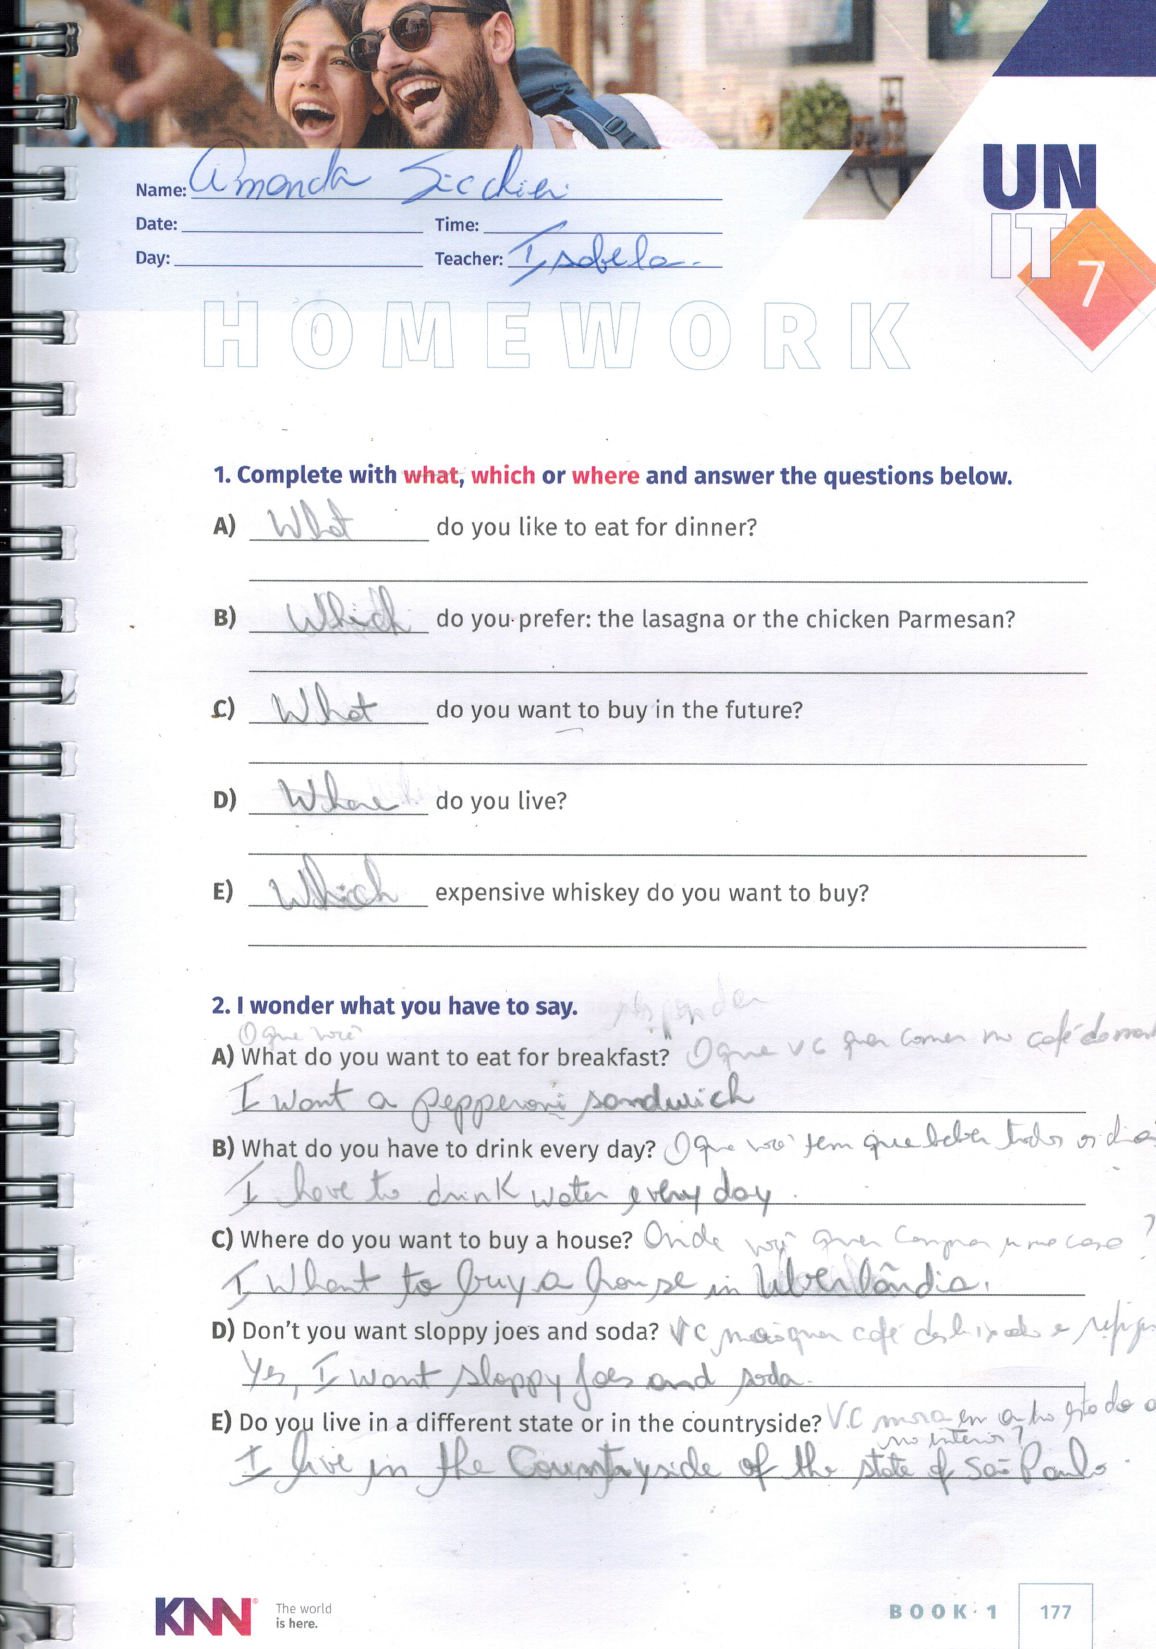 Name: Amanda Sicchieri
UN
IT
7
Date: Time:
Day: Teacher: Isabela
HOMEWORK
1. Complete with what, which or where and answer the questions below.
A) What do you like to eat for dinner?
B) Which do you prefer: the lasagna or the chicken Parmesan?
C) What do you want to buy in the future?
D) Where do you live?
E) Which expensive whiskey do you want to buy?
2. I wonder what you have to say.
O que você
A) What do you want to eat for breakfast? O que vc quer comer no café da manh
I want a pepperoni sandwich
B) What do you have to drink every day? O que você tem que beber todos os dias
I have to drink water every day.
C) Where do you want to buy a house? Onde você quer comprar uma casa?
I Whant to buy a house in Uberlândia.
D) Don't you want sloppy joes and soda? VC não quer e
Yes, I want sloppy joes and soda.
E) Do you live in a different state or in the countryside? V.C mora em outro estado o
no interior?
I live in the Countryside of the state of São Paulo.
KNN The world
is here.
BOOK 1 177